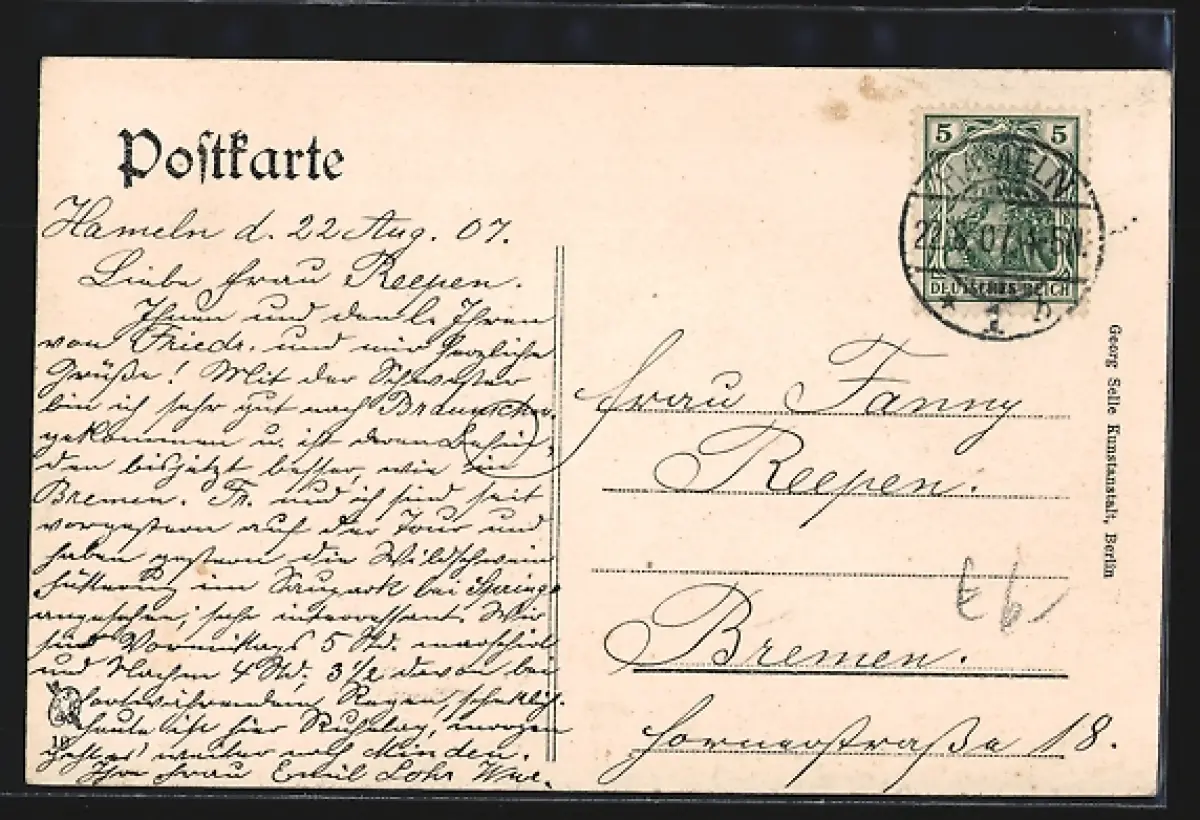 Postkarte
Hameln d. 22 Aug. 07.
Liebe Frau Reepen.
Ihnen und den l. Ihren
von Friedr. und mir herzliche
Grüße! Mit der Schwester
bin ich sehr gut nach Braunschw.
gekommen u. ist deren Befin-
den bisjetzt besser, wie in
Bremen. Fr. und ich sind seit
vorgestern auf der Tour und
haben gestern die Wildschwein
fütterung im Saupark bei Springe
angesehen, sehr interessant. Wir
sind Vormittags 5 Std. marschirt
und Nachm 4 Std; 3 1/2 davon bei
fortwährendem Regen,
heute ist hier Ruhetag, morgen
geht es weiter nach Minden.
Ihre Frau Emil Lohr Wwe.
5 5
HAMELN
22.8.07.4-5N.
* 1 b
DEUTSCHES REICH
Frau Fanny
Reepen.
Bremen.
Hornerstraße 18.
Georg Selle Kunstanstalt, Berlin